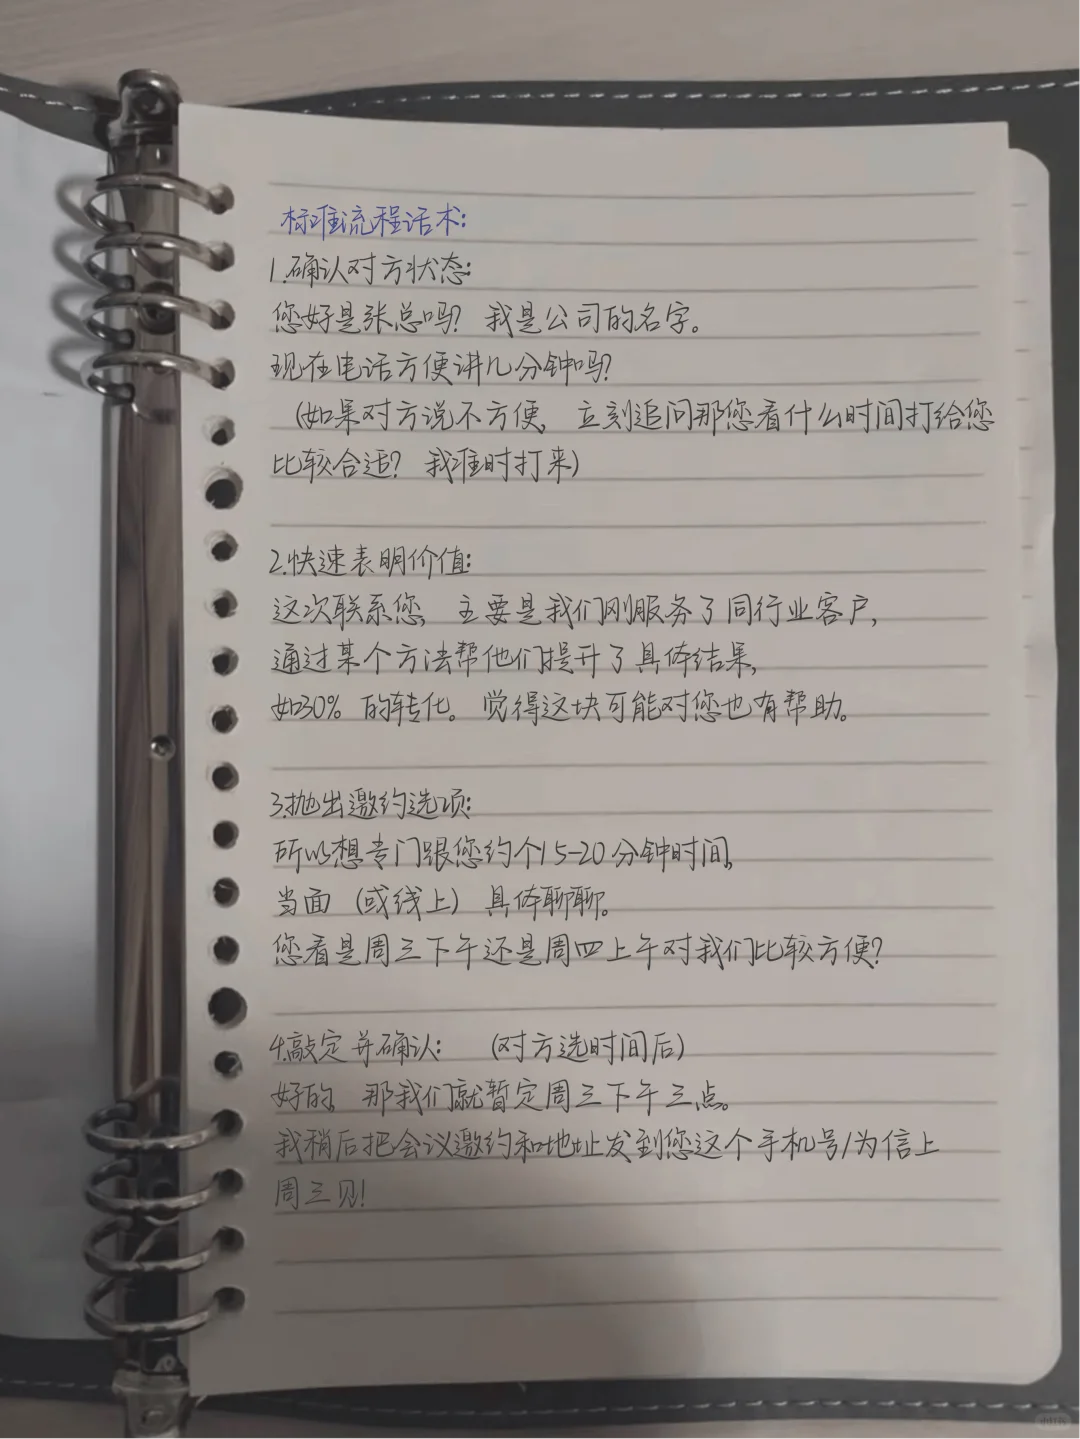 标准流程话术:
1.确认对方状态:
您好是张总吗? 我是公司的名字。
现在电话方便讲几分钟吗?
(如果对方说不方便, 立刻追问那您看什么时间打给您
比较合适? 我准时打来)
2.快速表明价值:
这次联系您, 主要是我们刚服务了同行业客户,
通过某个方法帮他们提升了具体结果,
如30% 的转化。觉得这块可能对您也有帮助。
3.抛出邀约选项:
所以想专门跟您约个15-20分钟时间,
当面 (或线上) 具体聊聊。
您看是周三下午还是周四上午对我们比较方便?
4.敲定并确认: (对方选时间后)
好的, 那我们就暂定周三下午三点。
我稍后把会议邀约和地址发到您这个手机号/为信上
周三见!